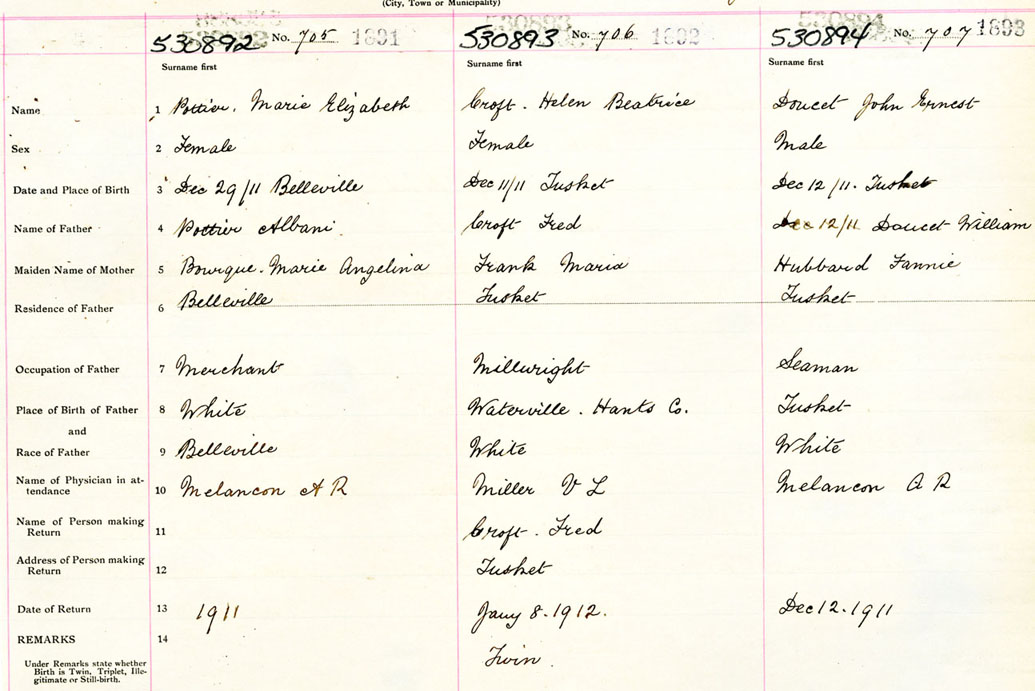 (City, Town or Municipality)
530892 No. 705 1891 530893 No. 706 1892 530894 No. 707 1893
Surname first Surname first Surname first
Name 1 Pottier. Marie Elizabeth Croft. Helen Beatrice Doucet John Ernest
Sex 2 Female Female Male
Date and Place of Birth 3 Dec 29/11 Belleville Dec 11/11 Tusket Dec 12/11. Tusket
Name of Father 4 Pottier Albani Croft Fred Dec 12/11 Doucet William
Maiden Name of Mother 5 Bourque. Marie Angelina Frank Maria Hubbard Fannie
Residence of Father 6 Belleville Tusket Tusket
Occupation of Father 7 Merchant Millwright Seaman
Place of Birth of Father 8 White Waterville. Hants Co. Tusket
and
Race of Father 9 Belleville White White
Name of Physician in at-
tendance 10 Melancon A R Miller V L Melancon A R
Name of Person making
Return 11 Croft. Fred
Address of Person making
Return 12 Tusket
Date of Return 13 1911 Jany 8. 1912. Dec 12. 1911
REMARKS 14
Under Remarks state whether
Birth is Twin, Triplet, Ille-
gitimate or Still-birth.
Twin.